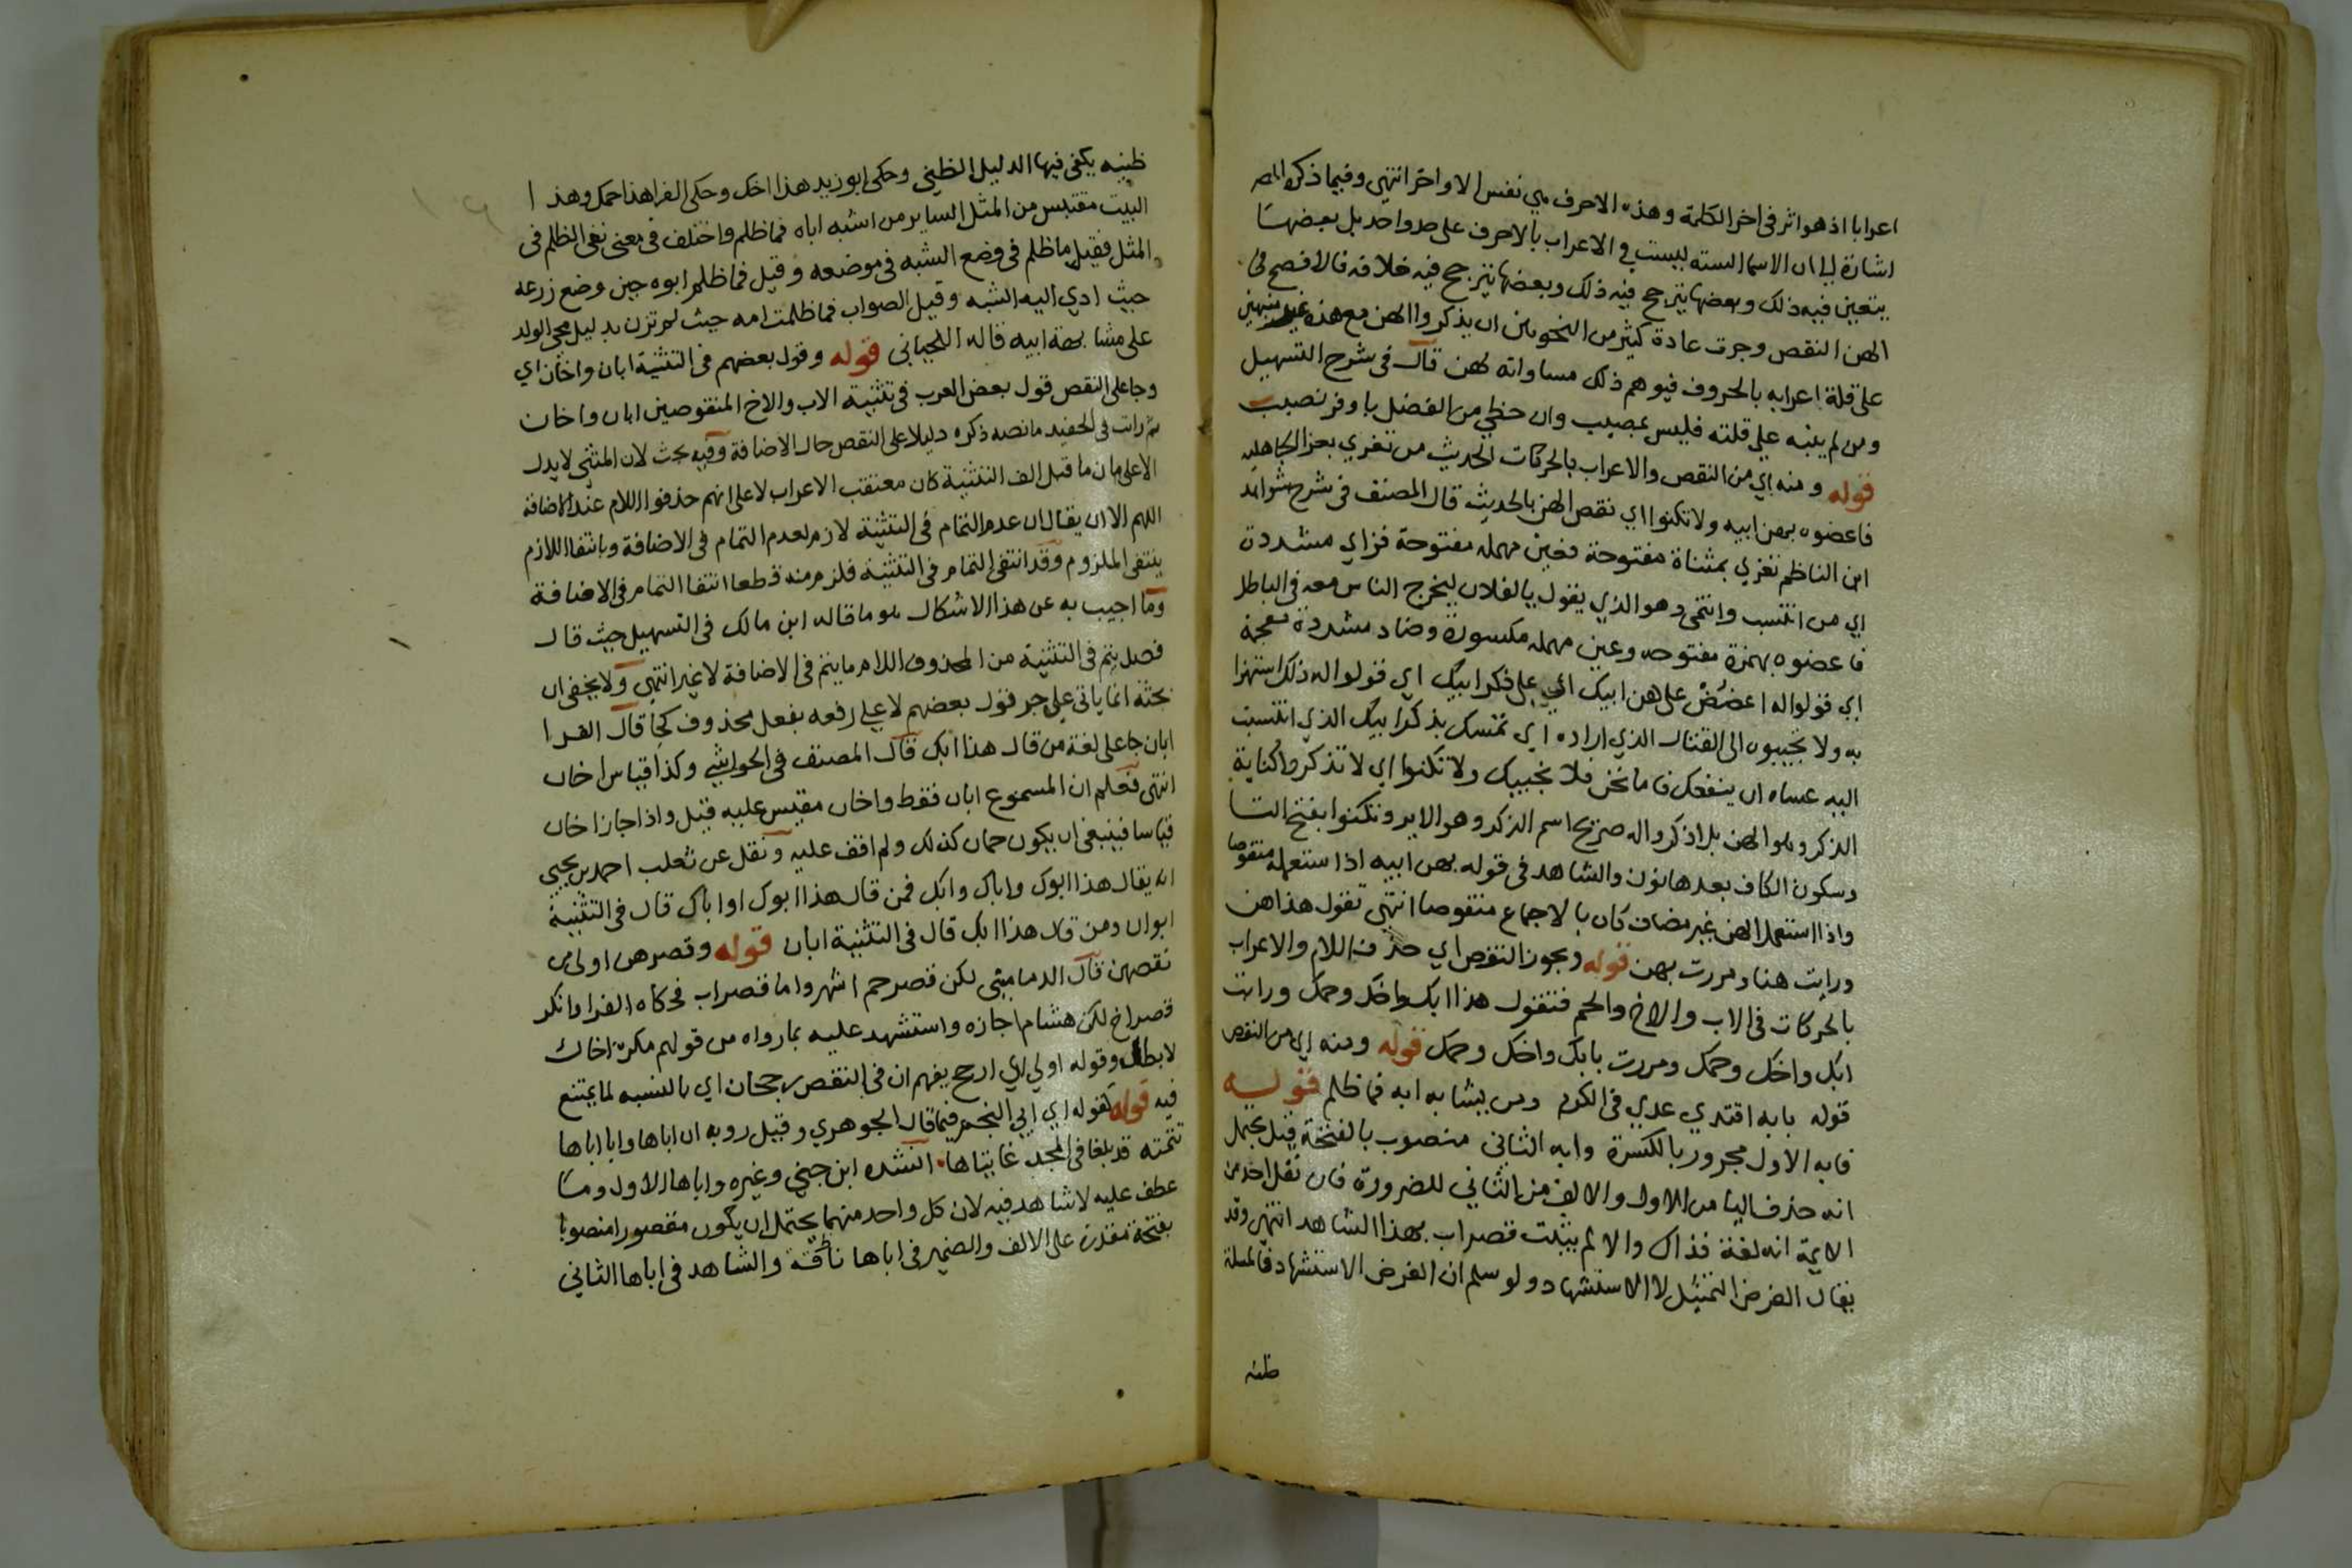 اعرابا اذ هو اثر فى اخر الكلمة وهذه الاحرف هي نفس الاواخر انتهى وفيما ذكره المص
اشارة الى ان الاسما الستة ليست في الاعراب بالاحرف على حد واحد بل بعضها
يتعين فيه ذلك وبعضها يترجح فيه ذلك وبعضها يترجح فيه خلافه فالافصح فى
الهن النقص وجرت عادة كثير من النحويين ان يذكروا الهن مع هذه منبهين
على قلة اعرابه بالحروف فيوهم ذلك مساواته لهن قال فى شرح التسهيل
ومن لم ينبه على قلته فليس بمصيب وان حظي من الفضل باوفر نصيب
قوله ومنه اي من النقص والاعراب بالحركات الحديث من تعزي بعزا الجاهلية
فاعضوه بهن ابيه ولا تكنوا اي نقص الهن بالحديث قال المصنف فى شرح شواهد
ابن الناظم تعزي بمثناة مفتوحة فعين مهملة مفتوحة فزاي مشددة
اي من انتسب وانتمى وهو الذي يقول يا لفلان ليخرج الناس معه فى الباطل
فاعضوه بهمزة مفتوحه وعين مهملة مكسورة وضاد مشددة معجمة
اي قولوا له اعضض على هن ابيك اي على ذكر ابيك اي قولوا له ذلك استهزا
به ولا تجيبوه الى القتال الذي اراده اي تمسك بذكر ابيك الذي انتسبت
اليه عساه ان ينفعك فاما نحن فلا نجيبك ولا تكنوا اي لا تذكروا كناية
الذكر وهو الهن بل اذكروا له صريح اسم الذكر وهو الاير وتكنوا بفتح التا
وسكون الكاف بعدها نون والشاهد فى قوله بهن ابيه اذا استعمله منقوصا
واذا استعمل الهن غير مضاف كان بالاجماع منقوصا انتهى تقول هذا هن
ورايت هنا ومررت بهن قوله ويجوز النقص اي حذف اللام والاعراب
بالحركات فى الاب والاخ والحم فتقول هذا ابك واخك وحمك ورايت
ابك واخك وحمك ومررت بابك واخك وحمك قوله ومنه اي من النقص
قوله بابه اقتدي عدي فى الكرم ومن يشابه ابه فما ظلم قوله
فابه الاول مجرور بالكسرة وابه الثاني منصوب بالفتحة قيل يحتمل
انه حذف اليا من الاول والالف من الثاني للضرورة فان نقل احد من
الايمة انه لغة فذاك والا لم يثبت قصر اب بهذا الشاهد انتهى وقد
يقال الغرض التمثيل لا الاستشهاد ولو سلم ان الغرض الاستشهاد فالمسلة
ظنيه
ظنيه يكفى فيها الدليل الظني وحكى ابو زيد هذا اخك وحكى الفرا هذا حمك وهذا
البيت مقتبس من المثل الساير من اشبه اباه فما ظلم واختلف فى معنى نفى الظلم فى
المثل فقيل ما ظلم فى وضع الشبه فى موضعه وقيل فما ظلم ابوه حين وضع زرعه
حيث ادي اليه الشبه وقيل الصواب فما ظلمت امه حيث لم تزن بدليل مجي الولد
على مشابهة ابيه قاله اللحياني قوله وقول بعضهم فى التثنية ابان واخان اي
وجا على النقص قول بعض العرب فى تثنية الاب والاخ المنقوصين ابان واخان
ثم رايت فى الحفيد ما نصه ذكره دليلا على النقص حال الاضافة وفيه بحث لان المثني لا يدل
الا على ان ما قبل الف التثنية كان معتقب الاعراب لا على انهم حذفوا اللام عند الاضافة
اللهم الا ان يقال ان عدم التمام فى التثنية لازم لعدم التمام فى الاضافة وبانتفا اللازم
ينتفى الملزوم وقد انتفى التمام فى التثنية فلزم منه قطعا انتفا التمام فى الاضافة
وما اجيب به عن هذا الاشكال هو ما قاله ابن مالك فى التسهيل حيث قال
فصل يتم فى التثنية من المحذوف اللام ما يتم فى الاضافة لا غير انتهى ولا يخفى ان
بحثه انما ياتى على جر قول بعضهم لا على رفعه بفعل محذوف كجا قال الفرا
ابان جا على لغة من قال هذا ابك قال المصنف فى الحواشي وكذا قياس اخان
انتهى فعلم ان المسموع ابان فقط واخان مقيس عليه قيل واذا جاز اخان
قياسا فينبغى ان يكون حمان كذلك ولم اقف عليه ونقل عن ثعلب احمد بن يحيى
انه يقال هذا ابوك واباك وابك فمن قال هذا ابوك او اباك قال فى التثنية
ابوان ومن قال هذا ابك قال فى التثنية ابان قوله وقصرهن اولى من
نقصهن قال الدماميني لكن قصر حم اشهر واما قصر اب فحكاه الفرا وانكر
قصر اخ لكن هشام اجازه واستشهد عليه بما رواه من قولهم مكره اخاك
لا بطل وقوله اولى اي ارجح يفهم ان فى النقص رجحان اي بالنسبه لما يمتنع
فيه قوله كقوله اي ابي النجم فيما قال الجوهري وقيل روبه ان اباها وابا اباها
تتمته قد بلغا فى المجد غايتاها انشده ابن جني وغيره واباها الاول وما
عطف عليه لا شاهد فيه لان كل واحد منهما يحتمل ان يكون مقصورا منصوبا
بفتحة مقدرة على الالف والضمير فى اباها ناقة والشاهد فى اباها الثاني